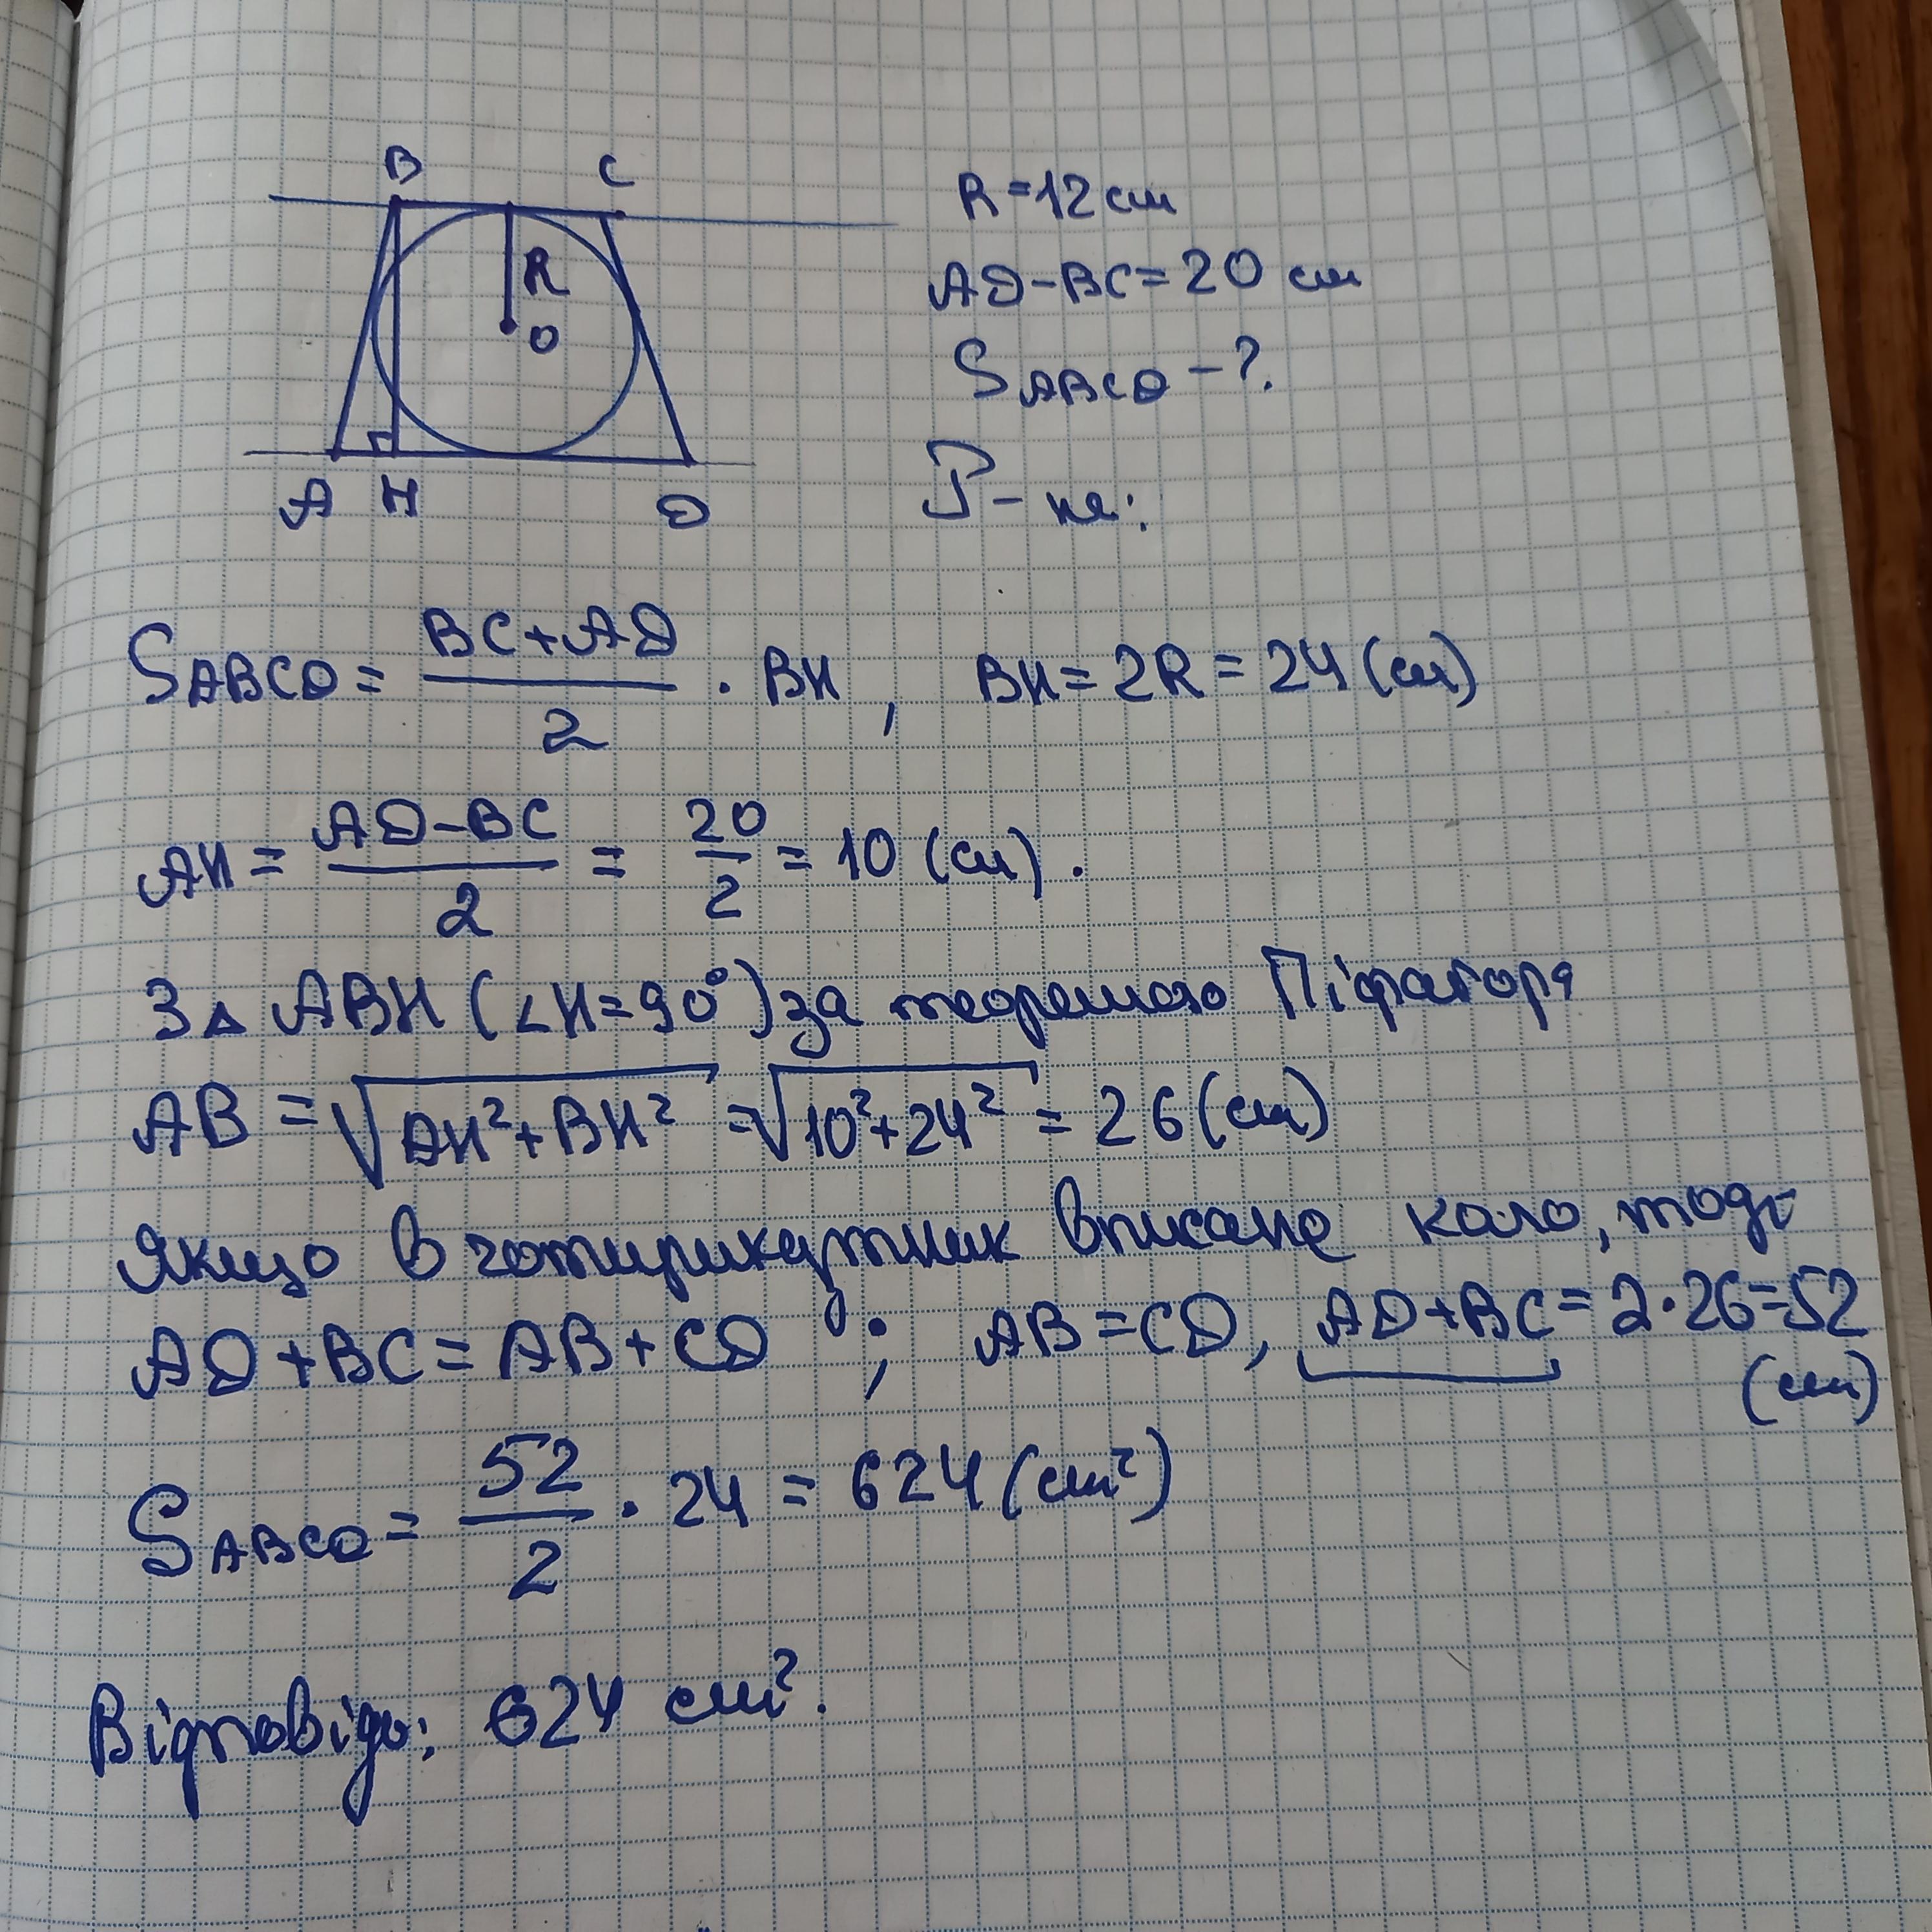 B C
R
O
A H D
R = 12 см
AD - BC = 20 см
S ABCD - ?
Р-ня:
S ABCD = (BC + AD) / 2 · BH, BH = 2R = 24 (см)
AH = (AD - BC) / 2 = 20 / 2 = 10 (см).
З △ ABH (∠H = 90°) за теоремою Піфагора
AB = √(AH² + BH²) = √(10² + 24²) = 26 (см)
Якщо в чотирикутник вписане коло, тоді
AD + BC = AB + CD ; AB = CD, AD + BC = 2·26 = 52
(см)
S ABCD = 52 / 2 · 24 = 624 (см²)
Відповідь: 624 см².